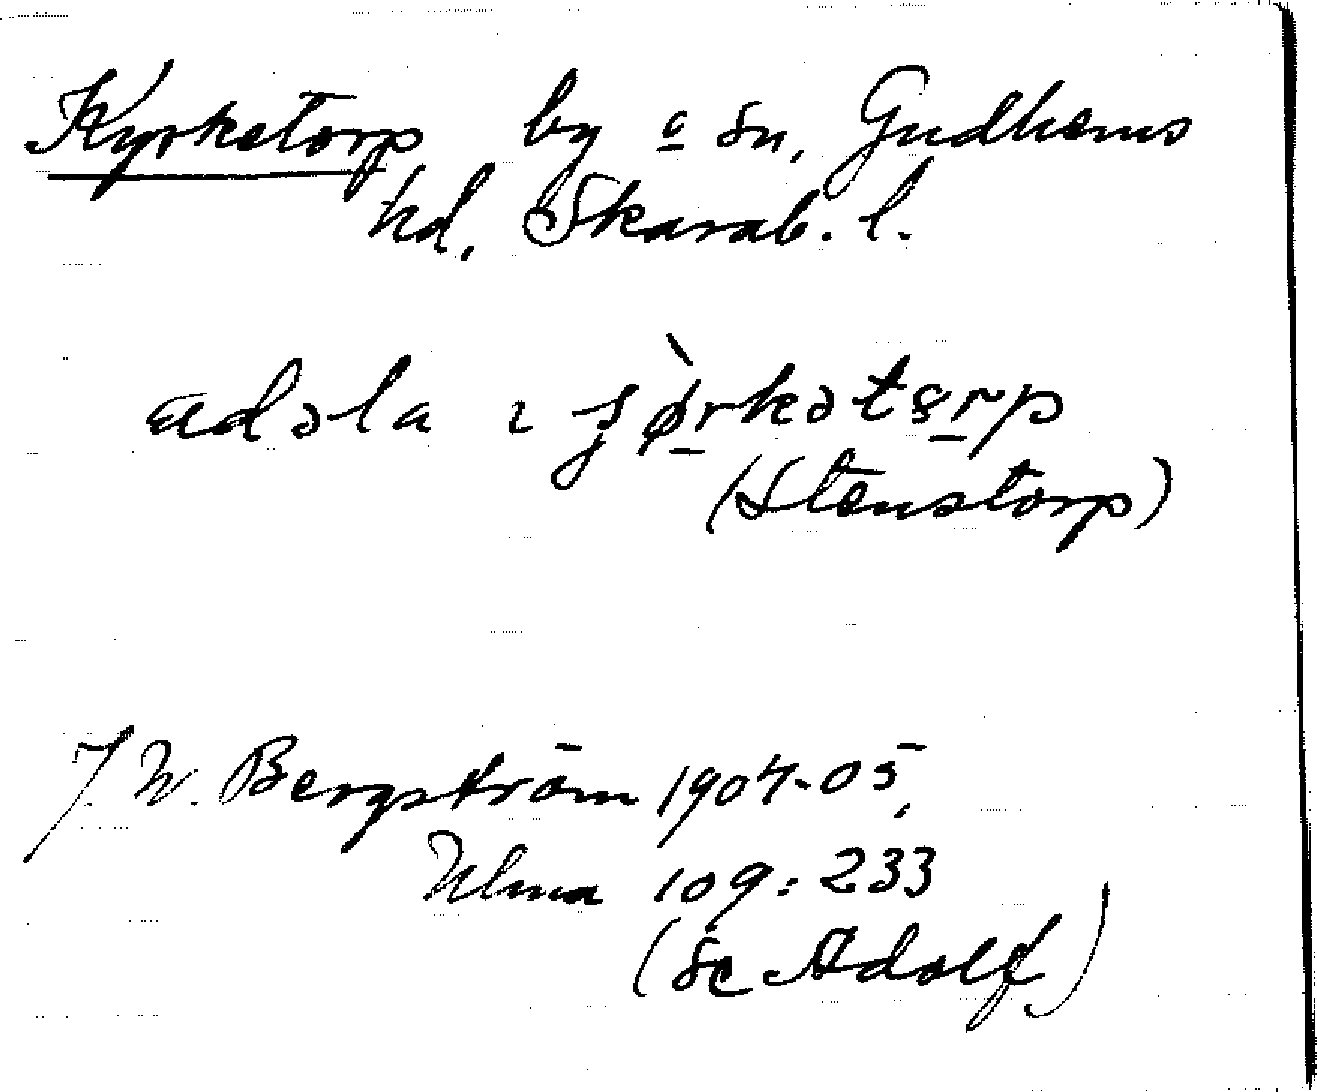 Kyrketorp by o sn, Gudhems
hd. Skarab. l.
adəla ı ʂø̀rkətɞrp
(Stenstorp)
J. W. Bergström 1904-05,
Ulma 109:233
(se Adolf)